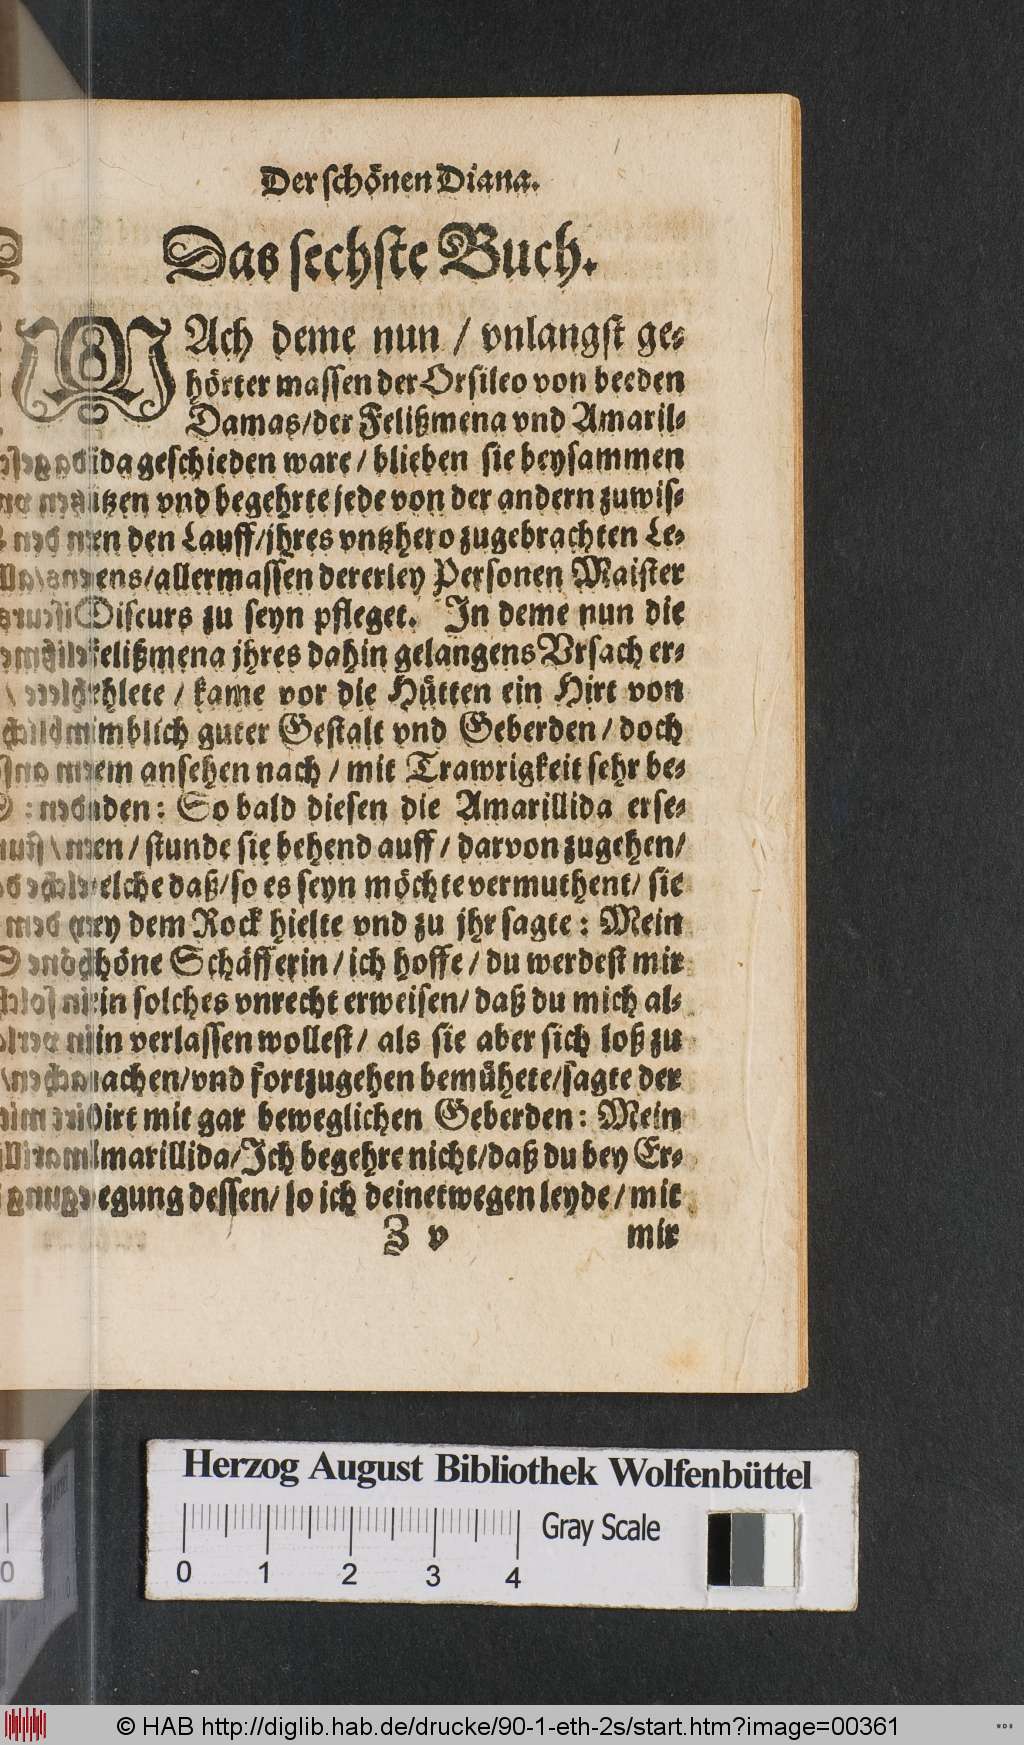 Der schönen Diana.
Das sechste Buch.
NAch deme nun / vnlangst ge-
hörter massen der Orsileo von beeden
Damas/der Felißmena vnd Amaril-
lida geschieden ware / blieben sie beysammen
sitzen vnd begehrte jede von der andern zuwis-
sen den Lauff/jhres vntzhero zugebrachten Le-
bens/allermassen dererley Personen Maister
Discurs zu seyn pfleget. In deme nun die
Felißmena jhres dahin gelangens Vrsach er-
zehlete / kame vor die Hütten ein Hirt von
zimblich guter Gestalt vnd Geberden / doch
dem ansehen nach / mit Trawrigkeit sehr be-
laden: So bald diesen die Amarillida erse-
hen / stunde sie behend auff / darvon zugehen/
welche daß/so es seyn möchte vermuthent/ sie
bey dem Rock hielte vnd zu jhr sagte: Mein
schöne Schäfferin / ich hoffe / du werdest mir
ein solches vnrecht erweisen/ daß du mich al-
lein verlassen wollest / als sie aber sich loß zu
machen/vnd fortzugehen bemühete/sagte der
Hirt mit gar beweglichen Geberden: Mein
Amarillida/Ich begehre nicht/daß du bey Er-
wegung dessen/ so ich deinetwegen leyde / mit
Z v
mir
Herzog August Bibliothek Wolfenbüttel
0 1 2 3 4
Gray Scale
© HAB http://diglib.hab.de/drucke/90-1-eth-2s/start.htm?image=00361